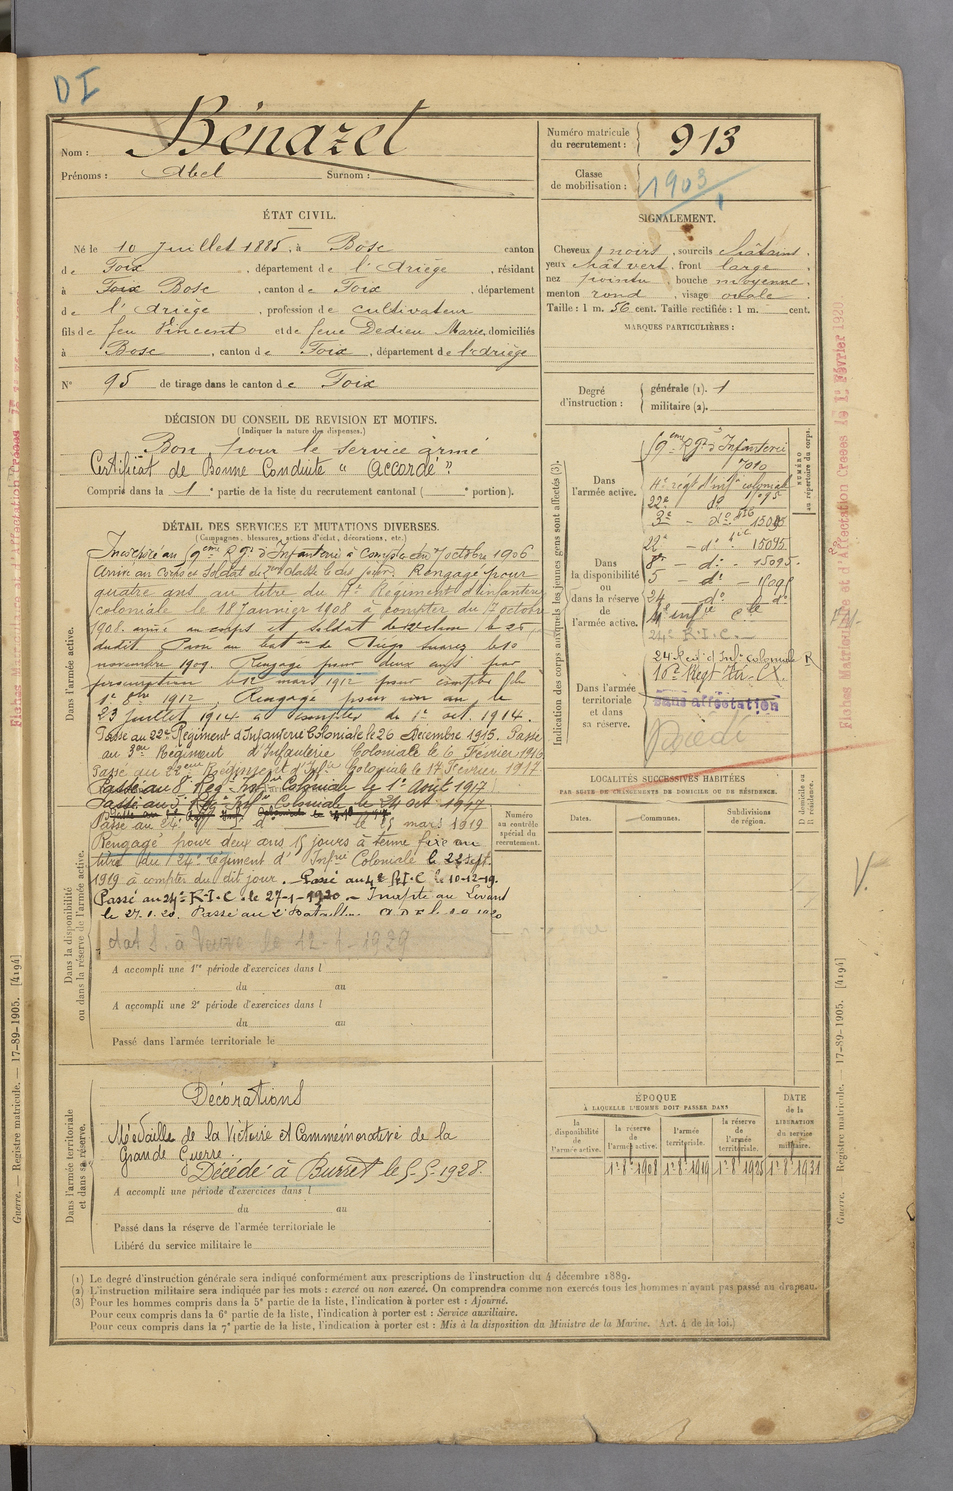 D I
Nom : Bénazet
Prénoms : Abel Surnom :
Numéro matricule du recrutement : 913
Classe de mobilisation : 1903
ÉTAT CIVIL.
Né le 10 Juillet 1885, à Bosc canton
de Foix, département de l'Ariège, résidant
à Foix Bosc, canton de Foix, département
de l'Ariège, profession de cultivateur
fils de feu Vincent et de feue Dedieu Marie, domiciliés
à Bosc, canton de Foix, département de l'Ariège
N° 95 de tirage dans le canton de Foix
SIGNALEMENT.
Cheveux noirs, sourcils châtains,
yeux chât vert, front large,
nez pointu, bouche moyenne,
menton rond, visage ovale.
Taille : 1 m. 56 cent. Taille rectifiée : 1 m. cent.
MARQUES PARTICULIÈRES :
Degré d'instruction : générale (1). 1
militaire (2).
DÉCISION DU CONSEIL DE REVISION ET MOTIFS.
(Indiquer la nature des dispenses.)
Bon pour le service armé
Certificat de Bonne Conduite "Accordé"
Compris dans la 1e partie de la liste du recrutement cantonal ( e portion).
DÉTAIL DES SERVICES ET MUTATIONS DIVERSES.
(Campagnes, blessures, actions d'éclat, décorations, etc.)
Dans l'armée active.
Incorporé au 9eme Rgt d'Infanterie à compter du 7 octobre 1906
Arrivé au corps et soldat de 2eme classe le dit jour. Rengagé pour
quatre ans au titre du 4e Régiment d'infanterie
coloniale le 18 Janvier 1908 à compter du 7 octobre
1908. arrivé au corps et soldat de 2e classe le 25
dudit. Passé au bat on de Diégo Suarez le 10
novembre 1909. Rengagé pour deux ans par
le 12 mars 1912 pour compter du
1e 8bre 1912, Rengagé pour un an le
23 Juillet 1914 à compter du 1er oct. 1914.
Passé au 22e Régiment d'Infanterie Coloniale le 26 Décembre 1915. Passé
au 3eme Régiment d'Infanterie Coloniale le 6 Février 1916
Passé au 22eme Régiment d'Inf ie Coloniale le 17 Février 1917
Passé au 8e Reg. Inf ie Coloniale le 1er Août 1917
Passé au 5e Reg. Inf ie Coloniale le 24 oct 1917
Passé au 24e d° le mars 1919
Rengagé pour deux ans 15 jours à terme fixe au
titre du 24e régiment d'Infrie Coloniale le 22 sept.
1919 à compter du dit jour. Passé au 4e R.I.C le 10-12-19.
Passé au 24e R.I.C. le 27-1-1920. Inapte au Levant
le 27.1.20. Passé au 2e Bataillon
à le 12-1-1929
Dans la disponibilité ou dans la réserve de l'armée active.
A accompli une 1re période d'exercices dans l
du au
A accompli une 2e période d'exercices dans l
du au
Passé dans l'armée territoriale le
Numéro au contrôle spécial du recrutement.
Dans l'armée territoriale et dans sa réserve.
Décorations
Médaille de la Victoire et Commémorative de la
Grande Guerre.
Décédé à Burret le 5.5.1928.
A accompli une période d'exercices dans l
du au
Passé dans la réserve de l'armée territoriale le
Libéré du service militaire le
Indication des corps auxquels les jeunes gens sont affectés (3).
NUMÉRO au répertoire du corps.
Dans l'armée active.
9eme Rgt d'Infanterie
7010
4e régt d'inf ie coloniale
22e d° 15095
3e d° 15095
22e - d° 15095
8e - d° - 15095.
5 - d° - 15095
24 - d° - d°
4e inf ie C le
24e R.I.C.
24 Régt d'Infie Coloniale R
10e Régt
Dans la disponibilité ou dans la réserve de l'armée active.
Dans l'armée territoriale et dans sa réserve.
Sans affectation
Décédé
LOCALITÉS SUCCESSIVES HABITÉES
PAR SUITE DE CHANGEMENTS DE DOMICILE OU DE RÉSIDENCE.
Dates. Communes. Subdivisions de région. D domicile ou R résidence.
ÉPOQUE
À LAQUELLE L'HOMME DOIT PASSER DANS
la disponibilité de l'armée active. la réserve de l'armée active. l'armée territoriale. la réserve de l'armée territoriale.
DATE de la LIBÉRATION du service militaire.
1er 8e 1908 1er 8e 1919 1er 8e 1925 1er 8e 1931
(1) Le degré d'instruction générale sera indiqué conformément aux prescriptions de l'instruction du 4 décembre 1889.
(2) L'instruction militaire sera indiquée par les mots : exercé ou non exercé. On comprendra comme non exercés tous les hommes n'ayant pas passé au drapeau.
(3) Pour les hommes compris dans la 5e partie de la liste, l'indication à porter est : Ajourné.
Pour ceux compris dans la 6e partie de la liste, l'indication à porter est : Service auxiliaire.
Pour ceux compris dans la 7e partie de la liste, l'indication à porter est : Mis à la disposition du Ministre de la Marine. (Art. 4 de la loi.)
Guerre. — Registre matricule. — 17-89-1905. [4194]
Guerre. — Registre matricule. — 17-89-1905. [4194]
Fiches Matricule et d'Affectation Créées le 1er Février 1920.
V.